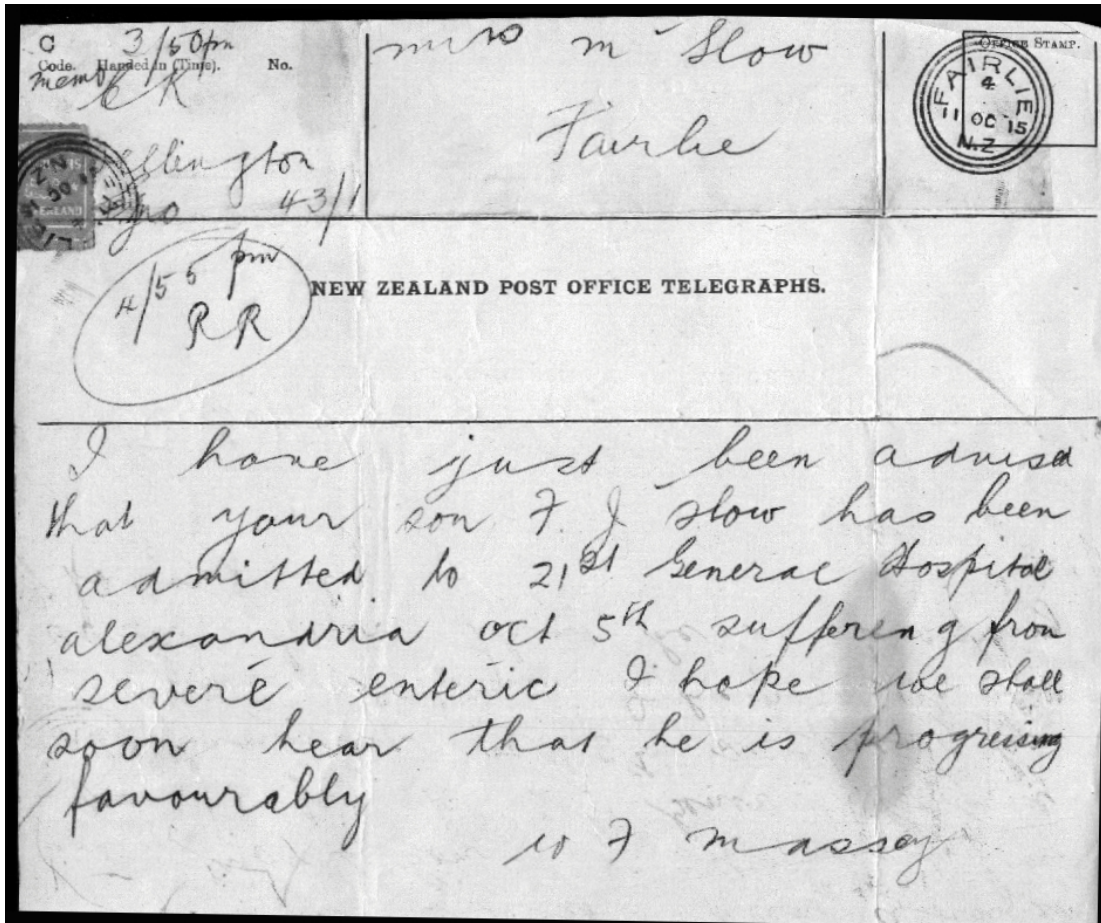 C 3/50pm
Code. Handed in (Time). No.
memo
CR
ellington
43/1
Mrs M Slow
Fairlie
OFFICE STAMP.
FAIRLIE
4
11 OC 15
N.Z
4/55 pm
RR
NEW ZEALAND POST OFFICE TELEGRAPHS.
I have just been advised
that your son F. J Slow has been
admitted to 21st General Hospital
alexandria oct 5th suffering from
severe enteric I hope we shall
soon hear that he is progressing
favourably
W F Massey